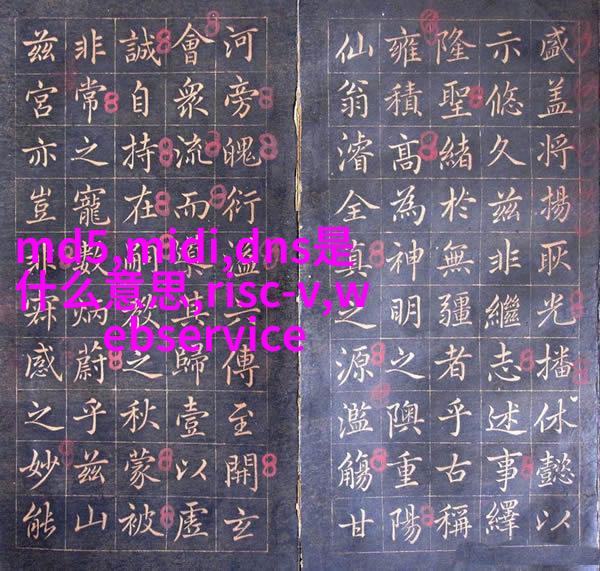 盛盖將揚耿光播休懿以
示悠久茲非繼志述事繹
隆聖緒於無疆者乎古稱
雍積髙為神明之隩重陽
仙翁濬全真之源濫觴甘
河旁魄衍傳至開玄
會眾流而其歸壹以虛
誠自持在嗣教之秋蒙被
非常之寵數炳蔚乎茲山
茲宮亦豈非感之妙能
md5,midi,dns是
什么意思,risc-v,w
ebservice